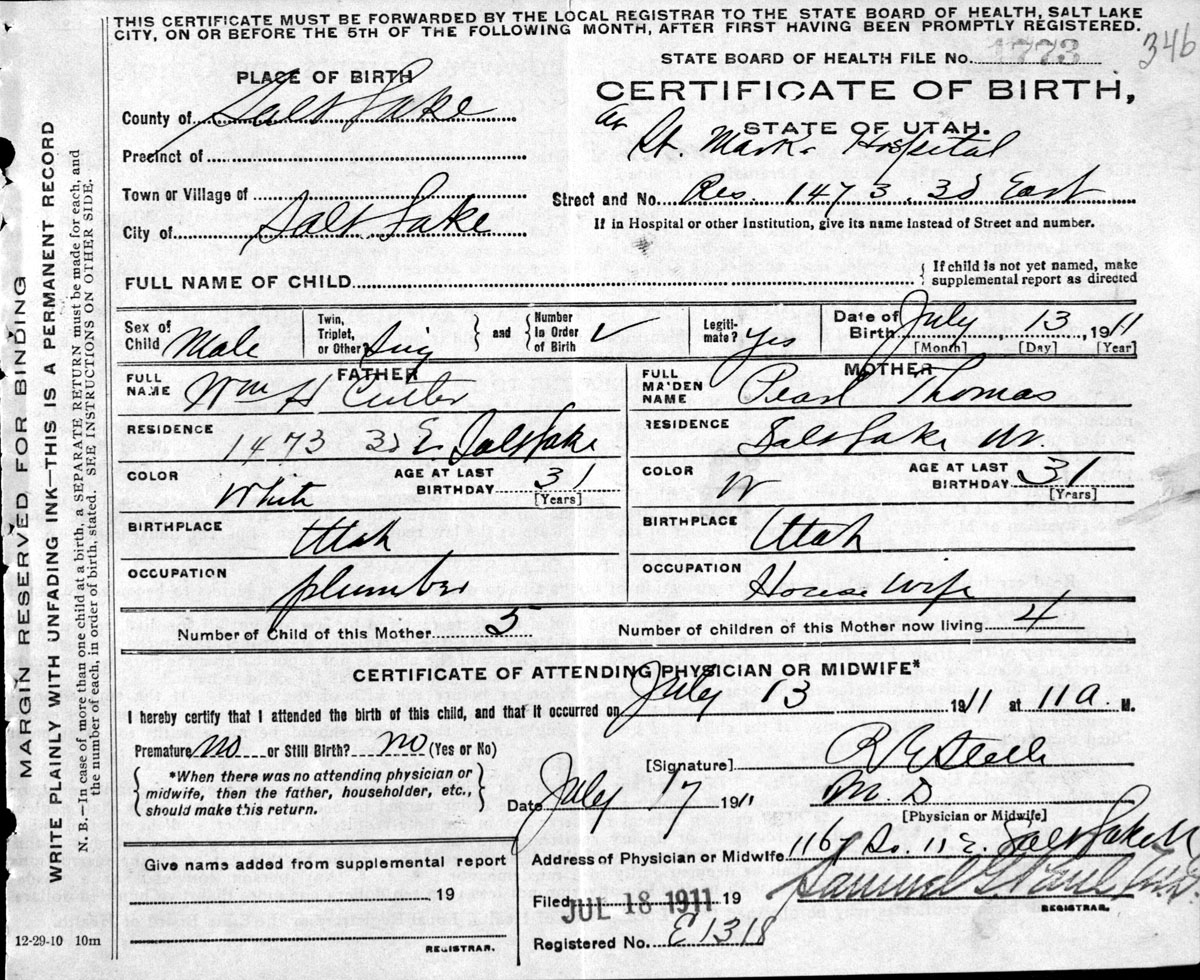 THIS CERTIFICATE MUST BE FORWARDED BY THE LOCAL REGISTRAR TO THE STATE BOARD OF HEALTH, SALT LAKE
CITY, ON OR BEFORE THE 5TH OF THE FOLLOWING MONTH, AFTER FIRST HAVING BEEN PROMPTLY REGISTERED.
346
MARGIN RESERVED FOR BINDING
WRITE PLAINLY WITH UNFADING INK—THIS IS A PERMANENT RECORD
N. B.—In case of more than one child at a birth, a SEPARATE RETURN must be made for each, and
the number of each, in order of birth, stated. SEE INSTRUCTIONS ON OTHER SIDE.
PLACE OF BIRTH
County of Salt Lake
Precinct of
Town or Village of
City of Salt Lake
STATE BOARD OF HEALTH FILE No. 1773
CERTIFICATE OF BIRTH,
STATE OF UTAH.
St. Marks Hospital
Street and No. Res. 1473. 3d East
If in Hospital or other Institution, give its name instead of Street and number.
FULL NAME OF CHILD
If child is not yet named, make
supplemental report as directed
Sex of Child Male
Twin, Triplet, or Other Sing
and Number in Order of Birth ✓
Legiti-mate? yes
Date of Birth July 13, 1911
[Month] [Day] [Year]
FATHER
FULL NAME Wm H Cutler
RESIDENCE 1473 3d E. Salt Lake
COLOR White
AGE AT LAST BIRTHDAY 31
[Years]
BIRTHPLACE Utah
OCCUPATION plumber
MOTHER
FULL MAIDEN NAME Pearl Thomas
RESIDENCE Salt Lake
COLOR W
AGE AT LAST BIRTHDAY 31
[Years]
BIRTHPLACE Utah
OCCUPATION House wife
Number of Child of this Mother 5
Number of children of this Mother now living 4
CERTIFICATE OF ATTENDING PHYSICIAN OR MIDWIFE*
I hereby certify that I attended the birth of this child, and that it occurred on July 13 1911 at 11 a. M.
Premature no or Still Birth? no (Yes or No)
*When there was no attending physician or
midwife, then the father, householder, etc.,
should make this return.
[Signature]
M. D
[Physician or Midwife]
Date July 17 1911
Give name added from supplemental report
19
REGISTRAR.
Address of Physician or Midwife 1167 So. 11 E. Salt Lake
Filed JUL 18 1911 19
Samuel G Paul
REGISTRAR.
Registered No. E1318
12-29-10 10m